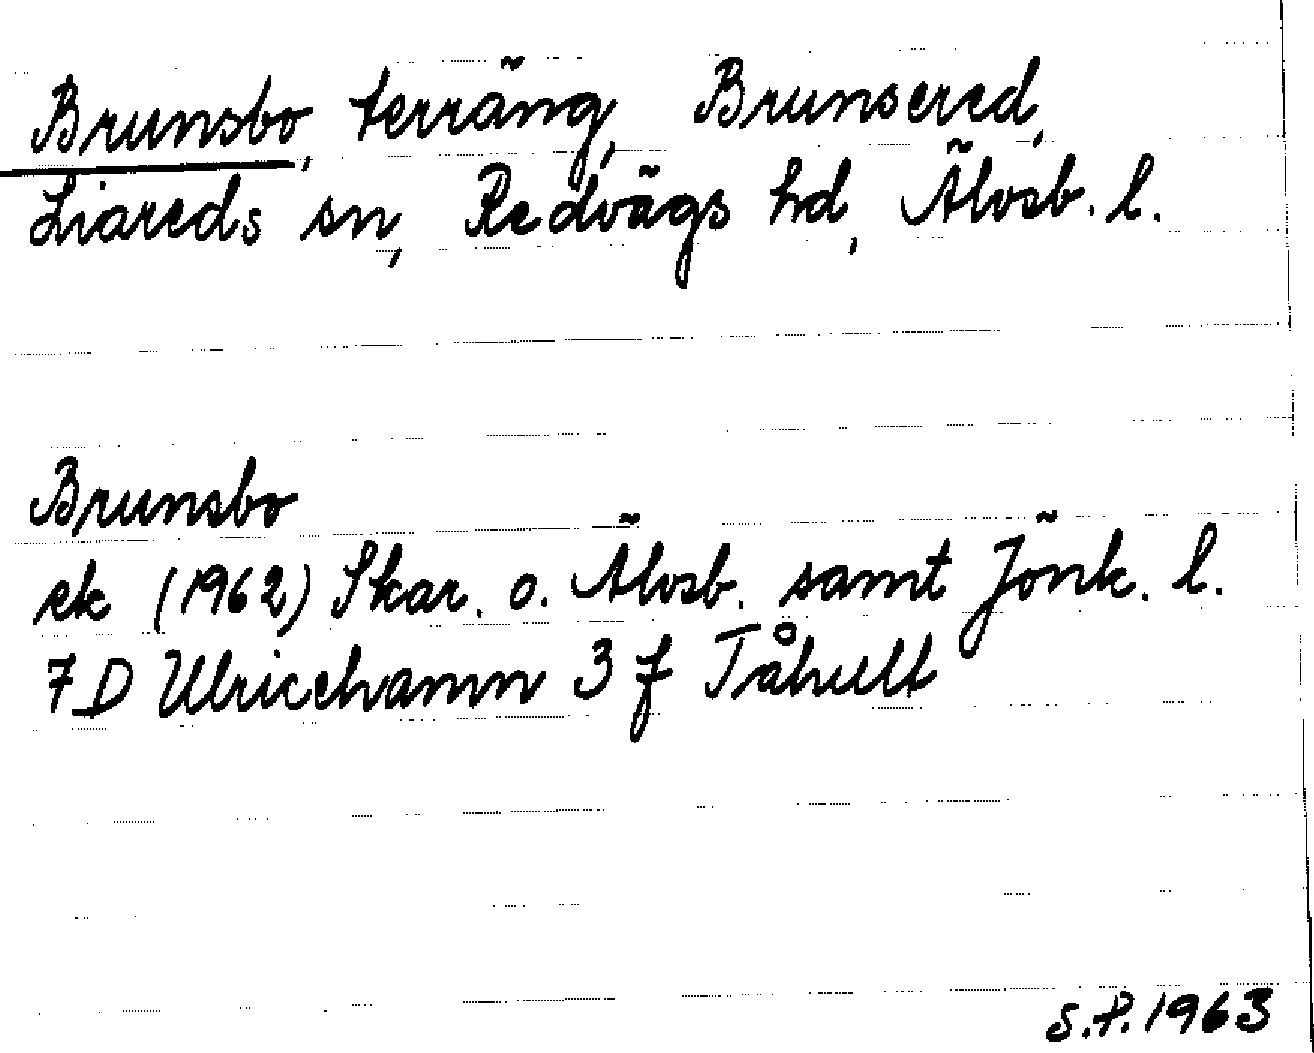 Brunsbo, terräng, Brunsered,
Liareds sn, Redvägs hd, Älvsb. l.
Brunsbo
ek (1962) Skar. o. Älvsb. samt Jönk. l.
7D Ulricehamn 3 f Tåhult
S.P. 1963